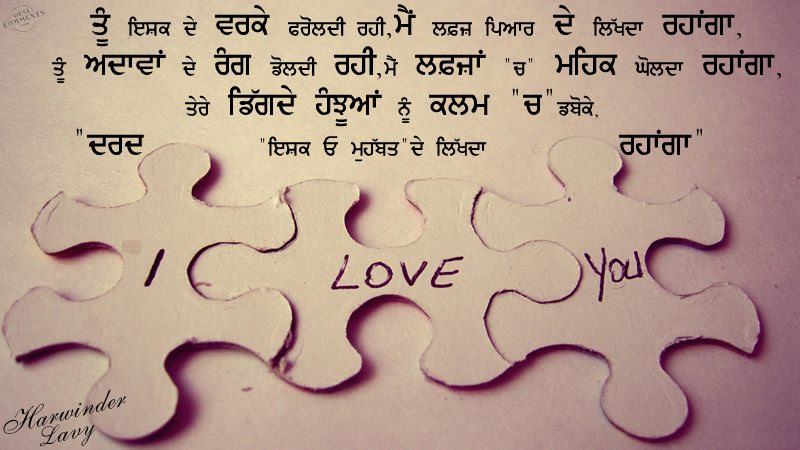 DESI COMMENTS
ਤੂੰ ਇਸ਼ਕ ਦੇ ਵਰਕੇ ਫਰੋਲਦੀ ਰਹੀ,ਮੈਂ ਲਫ਼ਜ਼ ਪਿਆਰ ਦੇ ਲਿੱਖਦਾ ਰਹਾਂਗਾ,
ਤੂੰ ਅਦਾਵਾਂ ਦੇ ਰੰਗ ਡੋਲਦੀ ਰਹੀ,ਮੈ ਲਫ਼ਜ਼ਾਂ "ਚ" ਮਹਿਕ ਘੋਲਦਾ ਰਹਾਂਗਾ,
ਤੇਰੇ ਡਿੱਗਦੇ ਹੰਝੂਆਂ ਨੂੰ ਕਲਮ "ਚ" ਡਬੋਕੇ,
"ਦਰਦ "ਇਸ਼ਕ ਓ ਮੁਹੱਬਤ" ਦੇ ਲਿੱਖਦਾ ਰਹਾਂਗਾ"
I LOVE You
Harwinder
Lavy